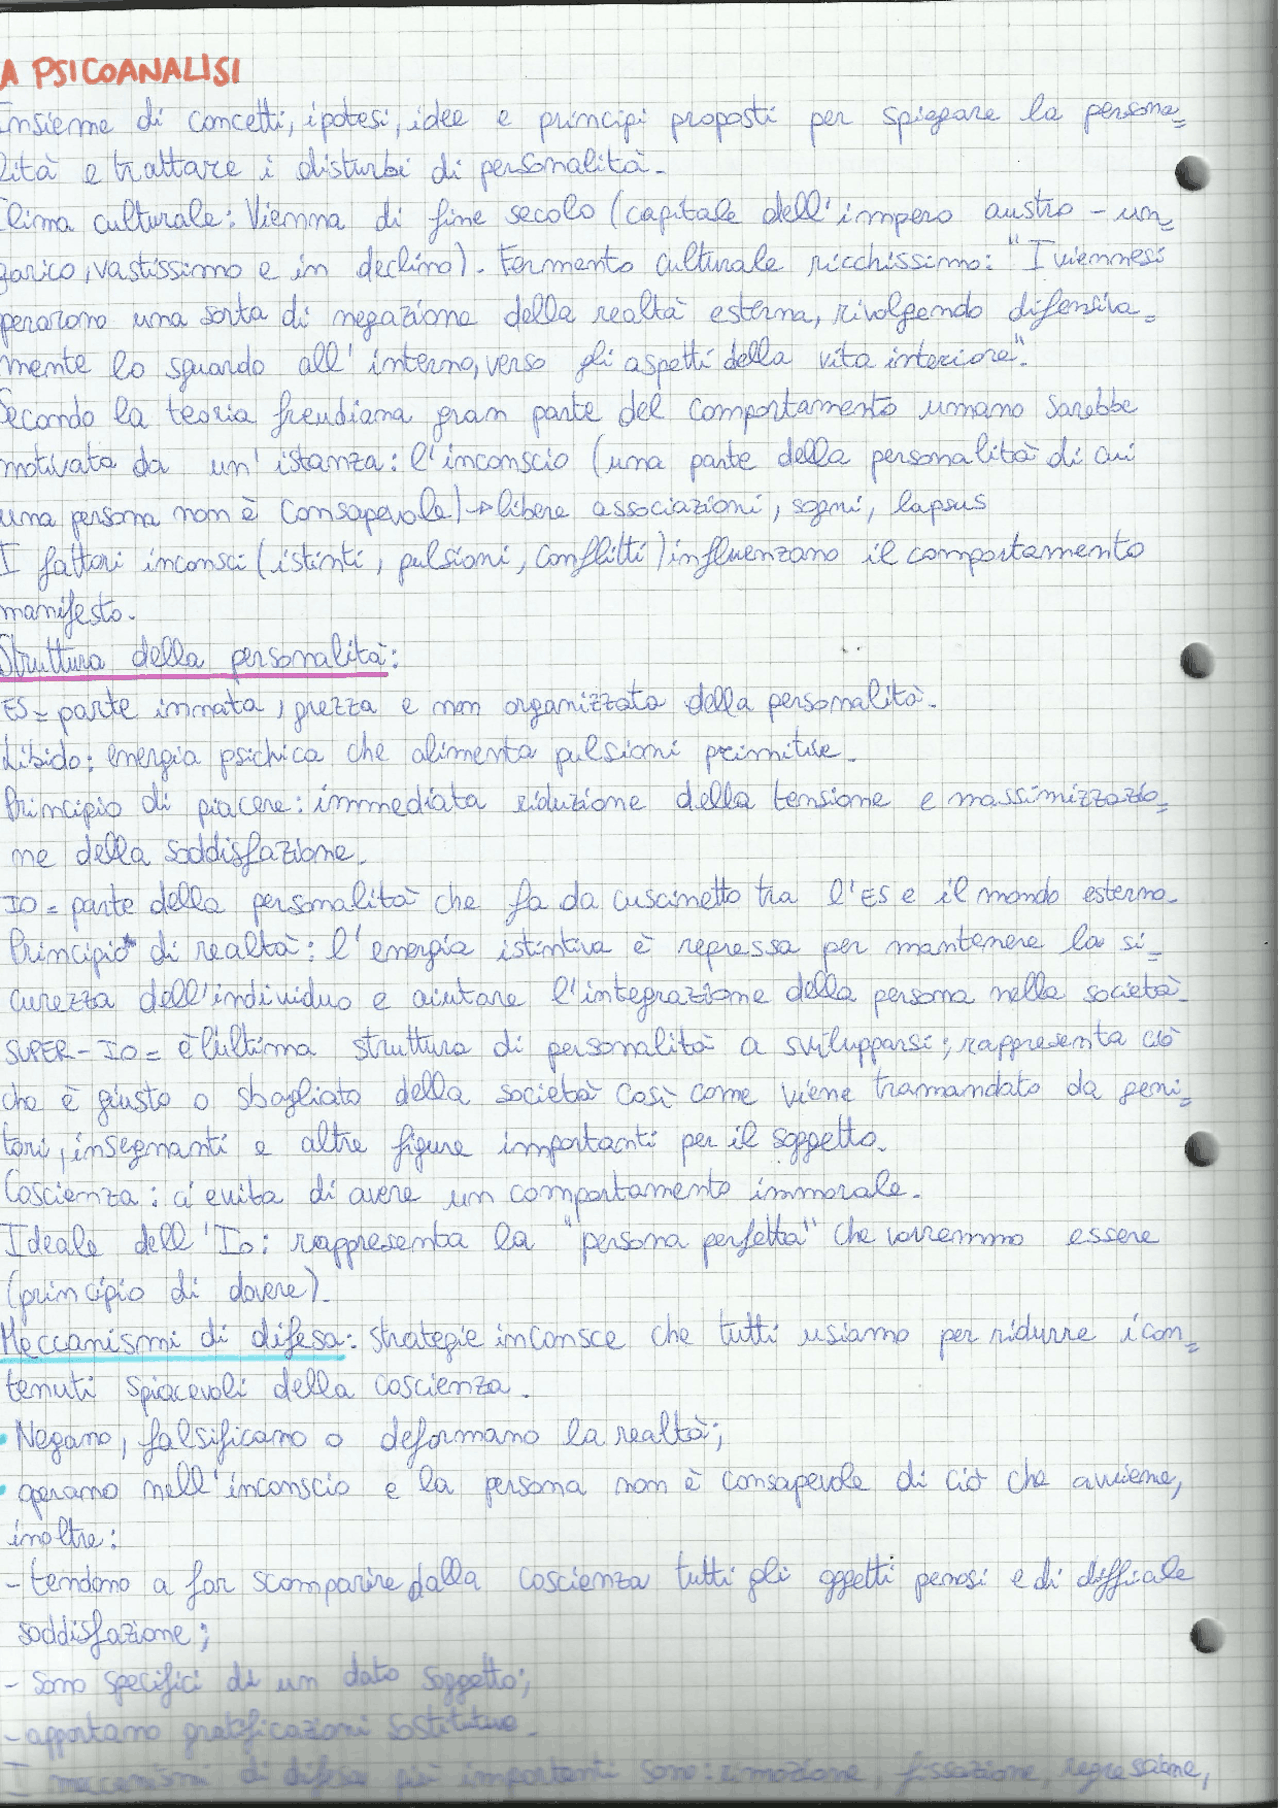 A PSICOANALISI
Insieme di concetti, ipotesi, idee e principi proposti per spiegare la persona=
lità e trattare i disturbi di personalità.
Clima culturale: Vienna di fine secolo (capitale dell'impero austro-un=
garico, vastissimo e in declino). Fermento culturale ricchissimo: "I viennesi
operarono una sorta di negazione della realtà esterna, rivolgendo difensiva=
mente lo sguardo all'interno, verso gli aspetti della vita interiore".
Secondo la teoria freudiana gran parte del comportamento umano sarebbe
motivata da un'istanza: l'inconscio (una parte della personalità di cui
una persona non è consapevole) → libere associazioni, sogni, lapsus
I fattori inconsci (istinti, pulsioni, conflitti) influenzano il comportamento
manifesto.
Struttura della personalità:
ES = parte innata, grezza e non organizzata della personalità.
Libido: energia psichica che alimenta pulsioni primitive.
Principio di piacere: immediata riduzione della tensione e massimizzazio=
ne della soddisfazione.
IO = parte della personalità che fa da cuscinetto tra l'ES e il mondo esterno.
Principio di realtà: l'energia istintiva è repressa per mantenere la si=
curezza dell'individuo e aiutare l'integrazione della persona nella società.
SUPER-IO = è l'ultima struttura di personalità a svilupparsi; rappresenta ciò
che è giusto o sbagliato della società così come viene tramandato da geni=
tori, insegnanti e altre figure importanti per il soggetto.
Coscienza: ci evita di avere un comportamento immorale.
Ideale dell'Io: rappresenta la "persona perfetta" che vorremmo essere
(principio di dovere).
Meccanismi di difesa: strategie inconsce che tutti usiamo per ridurre i con=
tenuti spiacevoli della coscienza.
• Negano, falsificano o deformano la realtà;
• operano nell'inconscio e la persona non è consapevole di ciò che avviene,
inoltre:
- tendono a far scomparire dalla coscienza tutti gli oggetti penosi e di difficile
soddisfazione;
- sono specifici di un dato soggetto;
- apportano gratificazioni sostitutive.
I meccanismi di difesa più importanti sono: rimozione, fissazione, regressione,